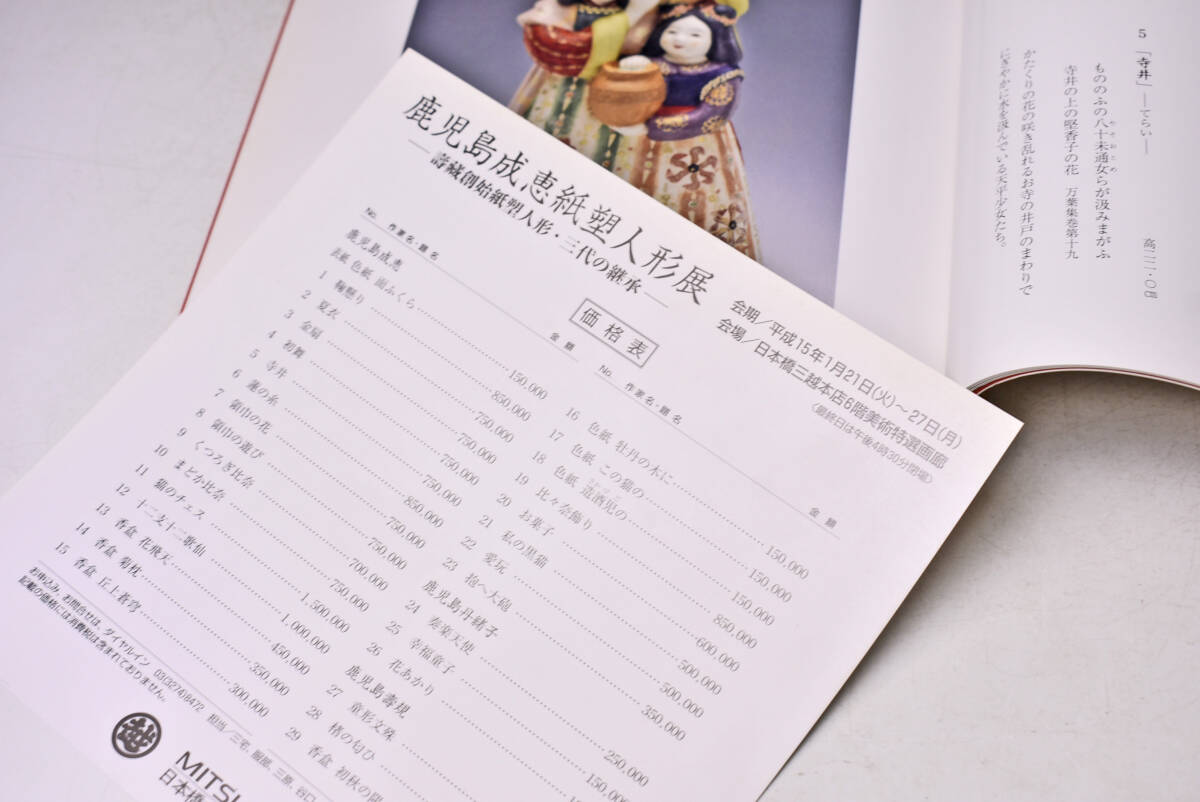 5 「寺井」―てらい― 高二二・〇㎝
もののふの八十未通女らが汲みまがふ
やそおとめ
寺井の上の堅香子の花 万葉集巻第十九
かたくりの花の咲き乱れるお寺の井戸のまわりで
にぎやかに水を汲んでいる天平少女たち。
鹿児島成恵紙塑人形展
―壽藏創始紙塑人形・三代の継承―
会期／平成15年1月21日(火)～27日(月)
会場／日本橋三越本店6階美術特選画廊
〈最終日は午後4時30分閉場〉
価格表
No. 作家名・題名 金額
鹿児島成恵
表紙 色紙 面ふくら 150,000
1 鞠懸り 850,000
2 夏衣 750,000
3 金扇 750,000
4 初舞 750,000
5 寺井 750,000
6 蓮の糸 850,000
7 領巾の花 750,000
8 領巾の遊び 750,000
9 くつろぎ比奈 700,000
10 まどか比奈 750,000
11 猫のチェス 1,500,000
12 十二支十二歌仙 1,000,000
13 香盒 花飛天 450,000
14 香盒 菊枕 350,000
15 香盒 丘上蒼穹 300,000
No. 作家名・題名 金額
16 色紙 牡丹の木に 150,000
17 色紙 この猫の 150,000
18 色紙 造酒児の 150,000
19 比々奈飾り 850,000
20 お菓子 600,000
21 私の黒猫 500,000
22 愛玩 500,000
23 抱へ大砲 350,000
鹿児島丹緒子
24 奏楽天使 250,000
25 幸福童子 150,000
26 花あかり
鹿児島壽現
27 童形文殊
28 楮の匂ひ
29 香盒 初秋の
お申込み、お問合せは、ダイヤルイン 03(3274)8472 担当／三宅、服部、三原、谷口
記載の価格には消費税は含まれておりません。
越
MITSU
日本橋